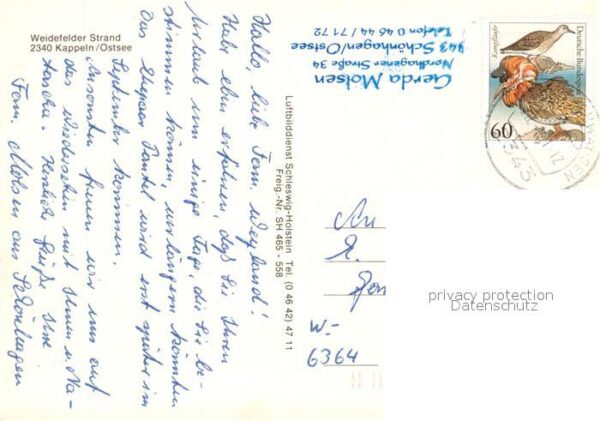 Weidefelder Strand
2340 Kappeln/Ostsee
Hallo, liebe Fam. Weyland!
Habe eben erfahren, daß Sie Ihren
Urlaub um einige Tage, die Sie be-
stimmen können, verlängern könnten
Das Ehepaar wird erst später im
September kommen.
Ansonsten freuen wir uns auf
das Wiedersehen mit Ihnen u. Na-
Herzliche Grüße Ihre
Fam. Molsen aus Schönhagen
Luftbilddienst Schleswig-Holstein Tel. (0 46 42) 47 11
Freig.-Nr. SH 465 - 558
Gerda Molsen
Nordhagener Straße 34
343 Schönhagen/Ostsee
Telefon 0 46 44 / 71 72
Deutsche Bundespost
Kampfläufer
60
An
Fam
W-
6364
privacy protection
Datenschutz